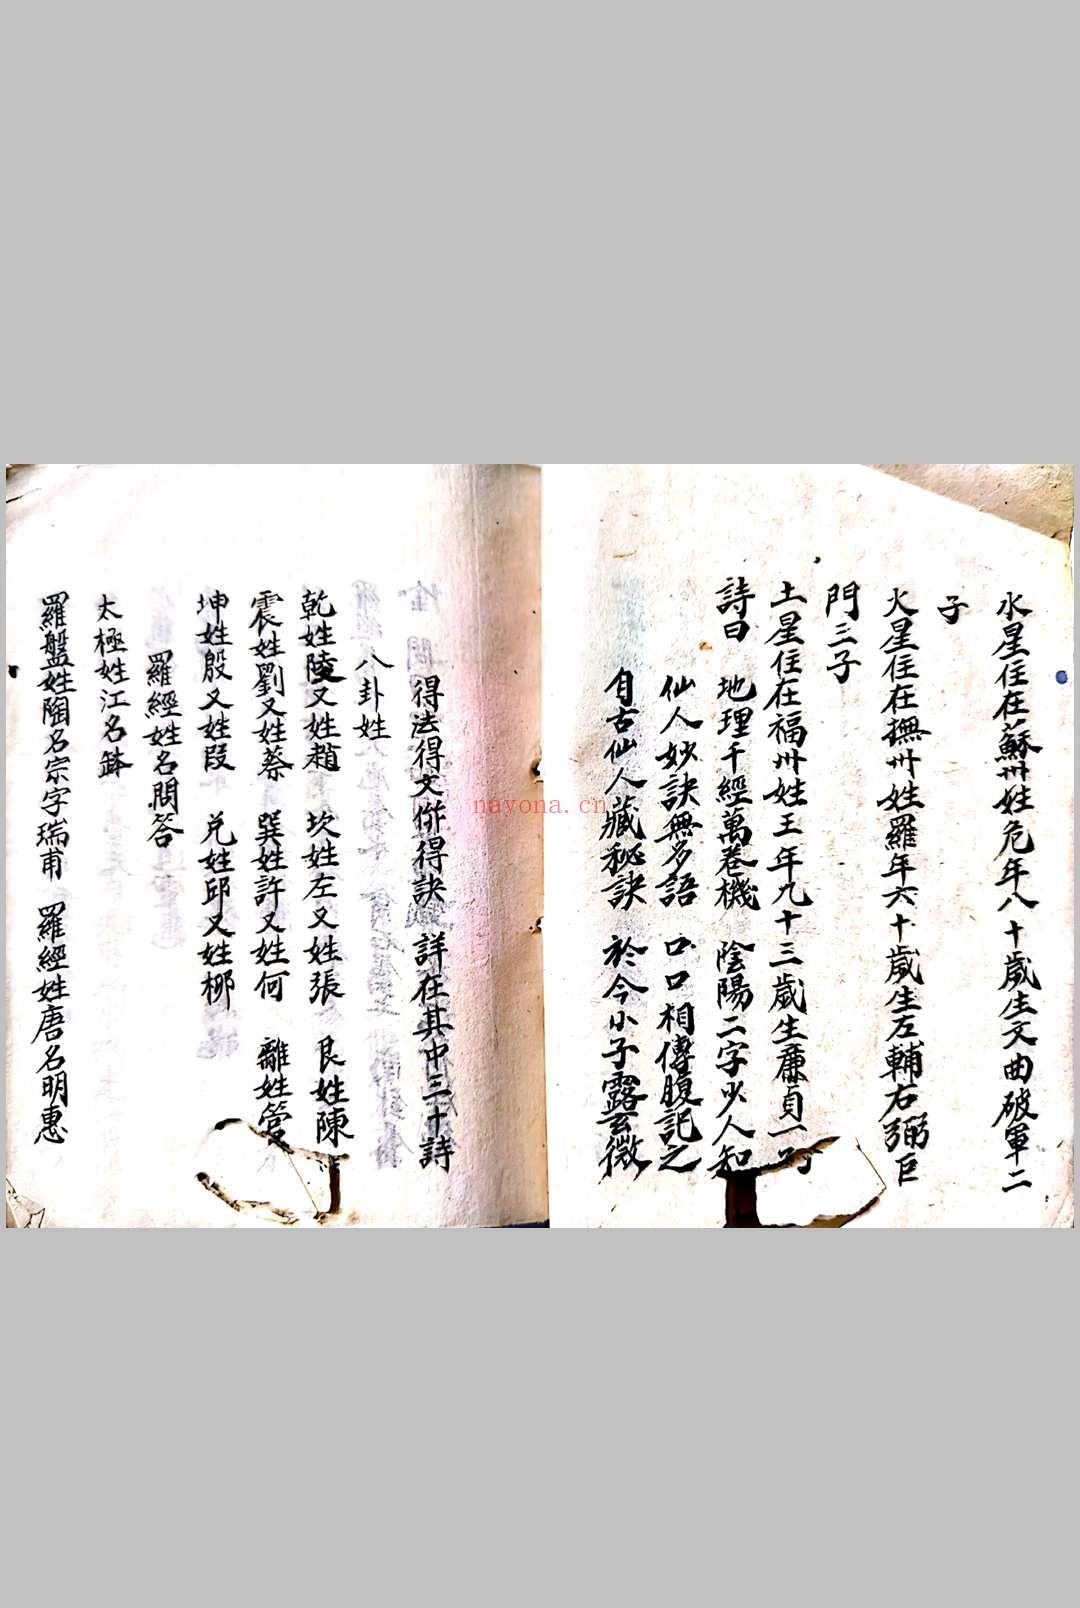 水星住在蘇州姓危年八十歲生文曲破軍二
子
火星住在撫州姓羅年六十歲生左輔右弼巨
門三子
土星住在福州姓王年九十三歲生廉貞一
詩曰 地理千經萬卷機 陰陽二字少人知
仙人妙訣無多語 口口相傳腹記之
自古仙人藏秘訣 於今小子露玄微
得法得文併得訣 詳在其中三十詩
八卦姓
乾姓陵又姓趙 坎姓左又姓張 艮姓陳
震姓劉又姓蔡 巽姓許又姓何 離姓管
坤姓殷又姓段 兌姓邱又姓柳
羅經姓名問答
太極姓江名鉢
羅盤姓陶名宗字瑞甫 羅經姓唐名明惠
nayona.cn